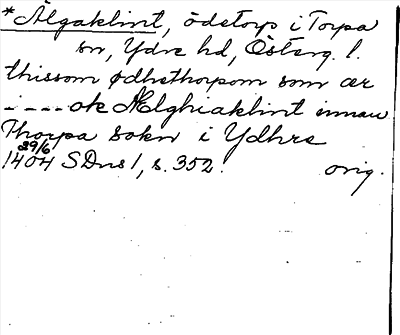 *Älgaklint, ödetorp i Torpa
sn, Ydre hd, Österg. l.
thissom ødhethorpom som ær
---- ok Ælghiaklint innan
Thorpa sokn i Ydhre
29/6
1404 SDns 1, s. 352. orig.